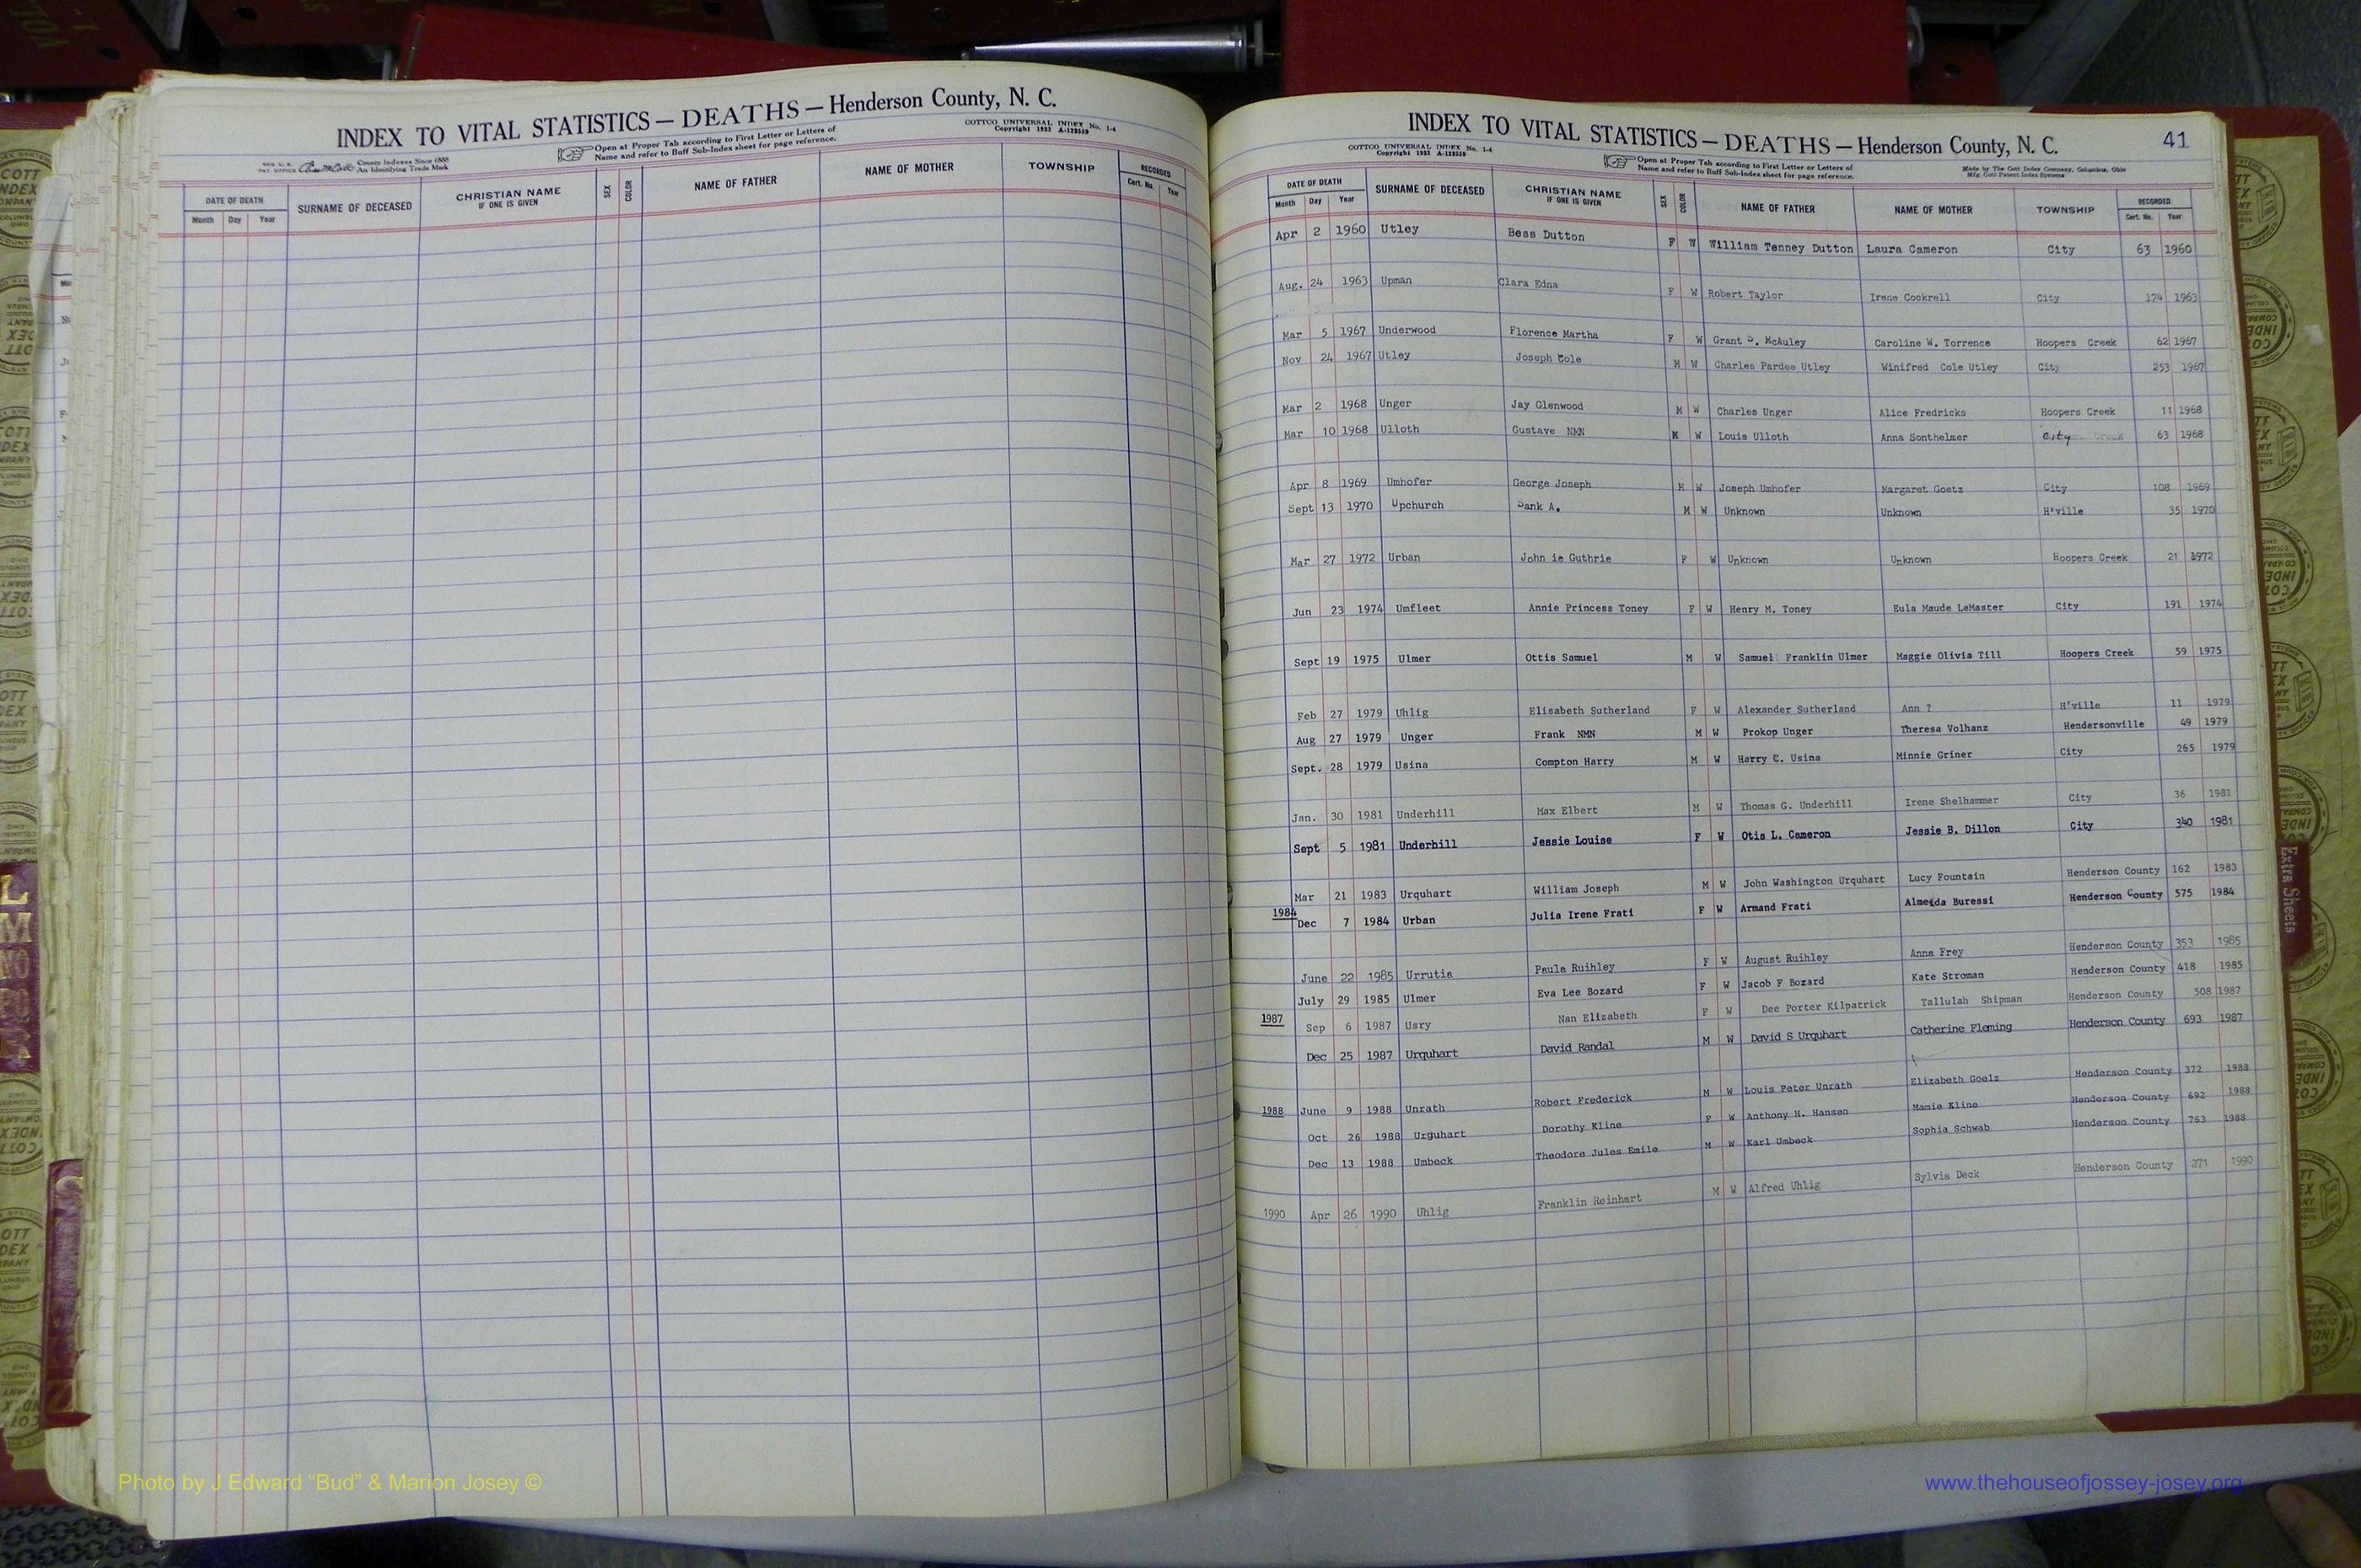 INDEX TO VITAL STATISTICS — DEATHS — Henderson County, N. C.
COTTCO UNIVERSAL INDEX No. 1-4
Copyright 1933 A-133559
County Indexes Since 1888
An Identifying Trade Mark
Open at Proper Tab according to First Letter or Letters of
Name and refer to Buff Sub-Index sheet for page reference.
DATE OF DEATH SURNAME OF DECEASED CHRISTIAN NAME IF ONE IS GIVEN SEX COLOR NAME OF FATHER NAME OF MOTHER TOWNSHIP RECORDED
Month Day Year Cert. No. Year
INDEX TO VITAL STATISTICS — DEATHS — Henderson County, N. C. 41
COTTCO UNIVERSAL INDEX No. 1-4
Copyright 1933 A-133559
Open at Proper Tab according to First Letter or Letters of
Name and refer to Buff Sub-Index sheet for page reference.
Made by The Cott Index Company, Columbus, Ohio
Mfg. Cott Patent Index Systems
DATE OF DEATH SURNAME OF DECEASED CHRISTIAN NAME IF ONE IS GIVEN SEX COLOR NAME OF FATHER NAME OF MOTHER TOWNSHIP RECORDED
Month Day Year Cert. No. Year
Apr 2 1960 Utley Bess Dutton F W William Tenney Dutton Laura Cameron City 63 1960
Aug. 24 1963 Upman Clara Edna F W Robert Taylor Irene Cockrell City 174 1963
Mar 5 1967 Underwood Florence Martha F W Grant S. McAuley Caroline W. Torrence Hoopers Creek 62 1967
Nov 24 1967 Utley Joseph Cole M W Charles Pardee Utley Winifred Cole Utley City 253 1967
Mar 2 1968 Unger Jay Glenwood M W Charles Unger Alice Fredricks Hoopers Creek 11 1968
Mar 10 1968 Ulloth Gustave NMN M W Louis Ulloth Anna Sonthelmer City 63 1968
Apr 8 1969 Umhofer George Joseph M W Joseph Umhofer Margaret Goetz City 108 1969
Sept 13 1970 Upchurch Dank A. M W Unknown Unknown H'ville 35 1970
Mar 27 1972 Urban John ie Guthrie F W Unknown Unknown Hoopers Creek 21 1972
Jun 23 1974 Umfleet Annie Princess Toney F W Henry M. Toney Eula Maude LeMaster City 191 1974
Sept 19 1975 Ulmer Ottis Samuel M W Samuel Franklin Ulmer Maggie Olivia Till Hoopers Creek 59 1975
Feb 27 1979 Uhlig Elisabeth Sutherland F W Alexander Sutherland Ann ? H'ville 11 1979
Aug 27 1979 Unger Frank NMN M W Prokop Unger Theresa Volhanz Hendersonville 49 1979
Sept. 28 1979 Usina Compton Harry M W Harry C. Usina Minnie Griner City 265 1979
Jan. 30 1981 Underhill Max Elbert M W Thomas G. Underhill Irene Shelhammer City 36 1981
Sept 5 1981 Underhill Jessie Louise F W Otis L. Cameron Jessie B. Dillon City 340 1981
Mar 21 1983 Urquhart William Joseph M W John Washington Urquhart Lucy Fountain Henderson County 162 1983
1984 Dec 7 1984 Urban Julia Irene Frati F W Armand Frati Almeida Buressi Henderson County 575 1984
June 22 1985 Urrutia Paula Ruihley F W August Ruihley Anna Frey Henderson County 353 1985
July 29 1985 Ulmer Eva Lee Bozard F W Jacob F Bozard Kate Stroman Henderson County 418 1985
1987 Sep 6 1987 Usry Nan Elizabeth F W Dee Porter Kilpatrick Tallulah Shipman Henderson County 508 1987
Dec 25 1987 Urquhart David Randal M W David S Urquhart Catherine Fleming Henderson County 693 1987
1988 June 9 1988 Unrath Robert Frederick M W Louis Peter Unrath Elizabeth Goelz Henderson County 372 1988
Oct 26 1988 Urguhart Dorothy Kline F W Anthony H. Hansen Mamie Kline Henderson County 692 1988
Dec 13 1988 Umbeck Theodore Jules Emile M W Karl Umbeck Sophia Schwab Henderson County 763 1988
1990 Apr 26 1990 Uhlig Franklin Reinhart M W Alfred Uhlig Sylvia Deck Henderson County 271 1990
Extra Sheets
Photo by J Edward "Bud" & Marion Josey ©
www.thehouseofjossey-josey.org